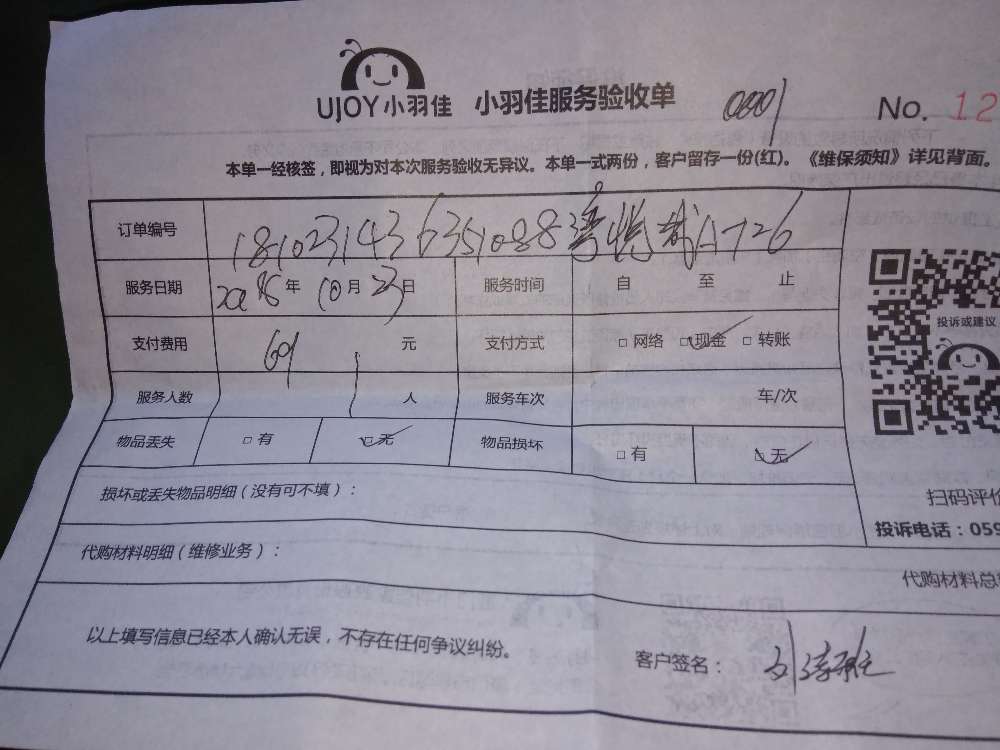 UJOY小羽佳 小羽佳服务验收单 0001 No. 12
本单一经核签，即视为对本次服务验收无异议。本单一式两份，客户留存一份(红)。《维保须知》详见背面。
订单编号 1810231436351088
服务日期 2018年10月23日 服务时间 自 至 止
投诉或建议
支付费用 元 支付方式 □网络 □现金 □转账
服务人数 1人 服务车次 车/次
物品丢失 □有 □无 物品损坏 □有 □无
损坏或丢失物品明细（没有可不填）：
扫码评价
投诉电话：059
代购材料明细（维修业务）：
代购材料总
以上填写信息已经本人确认无误，不存在任何争议纠纷。
客户签名：